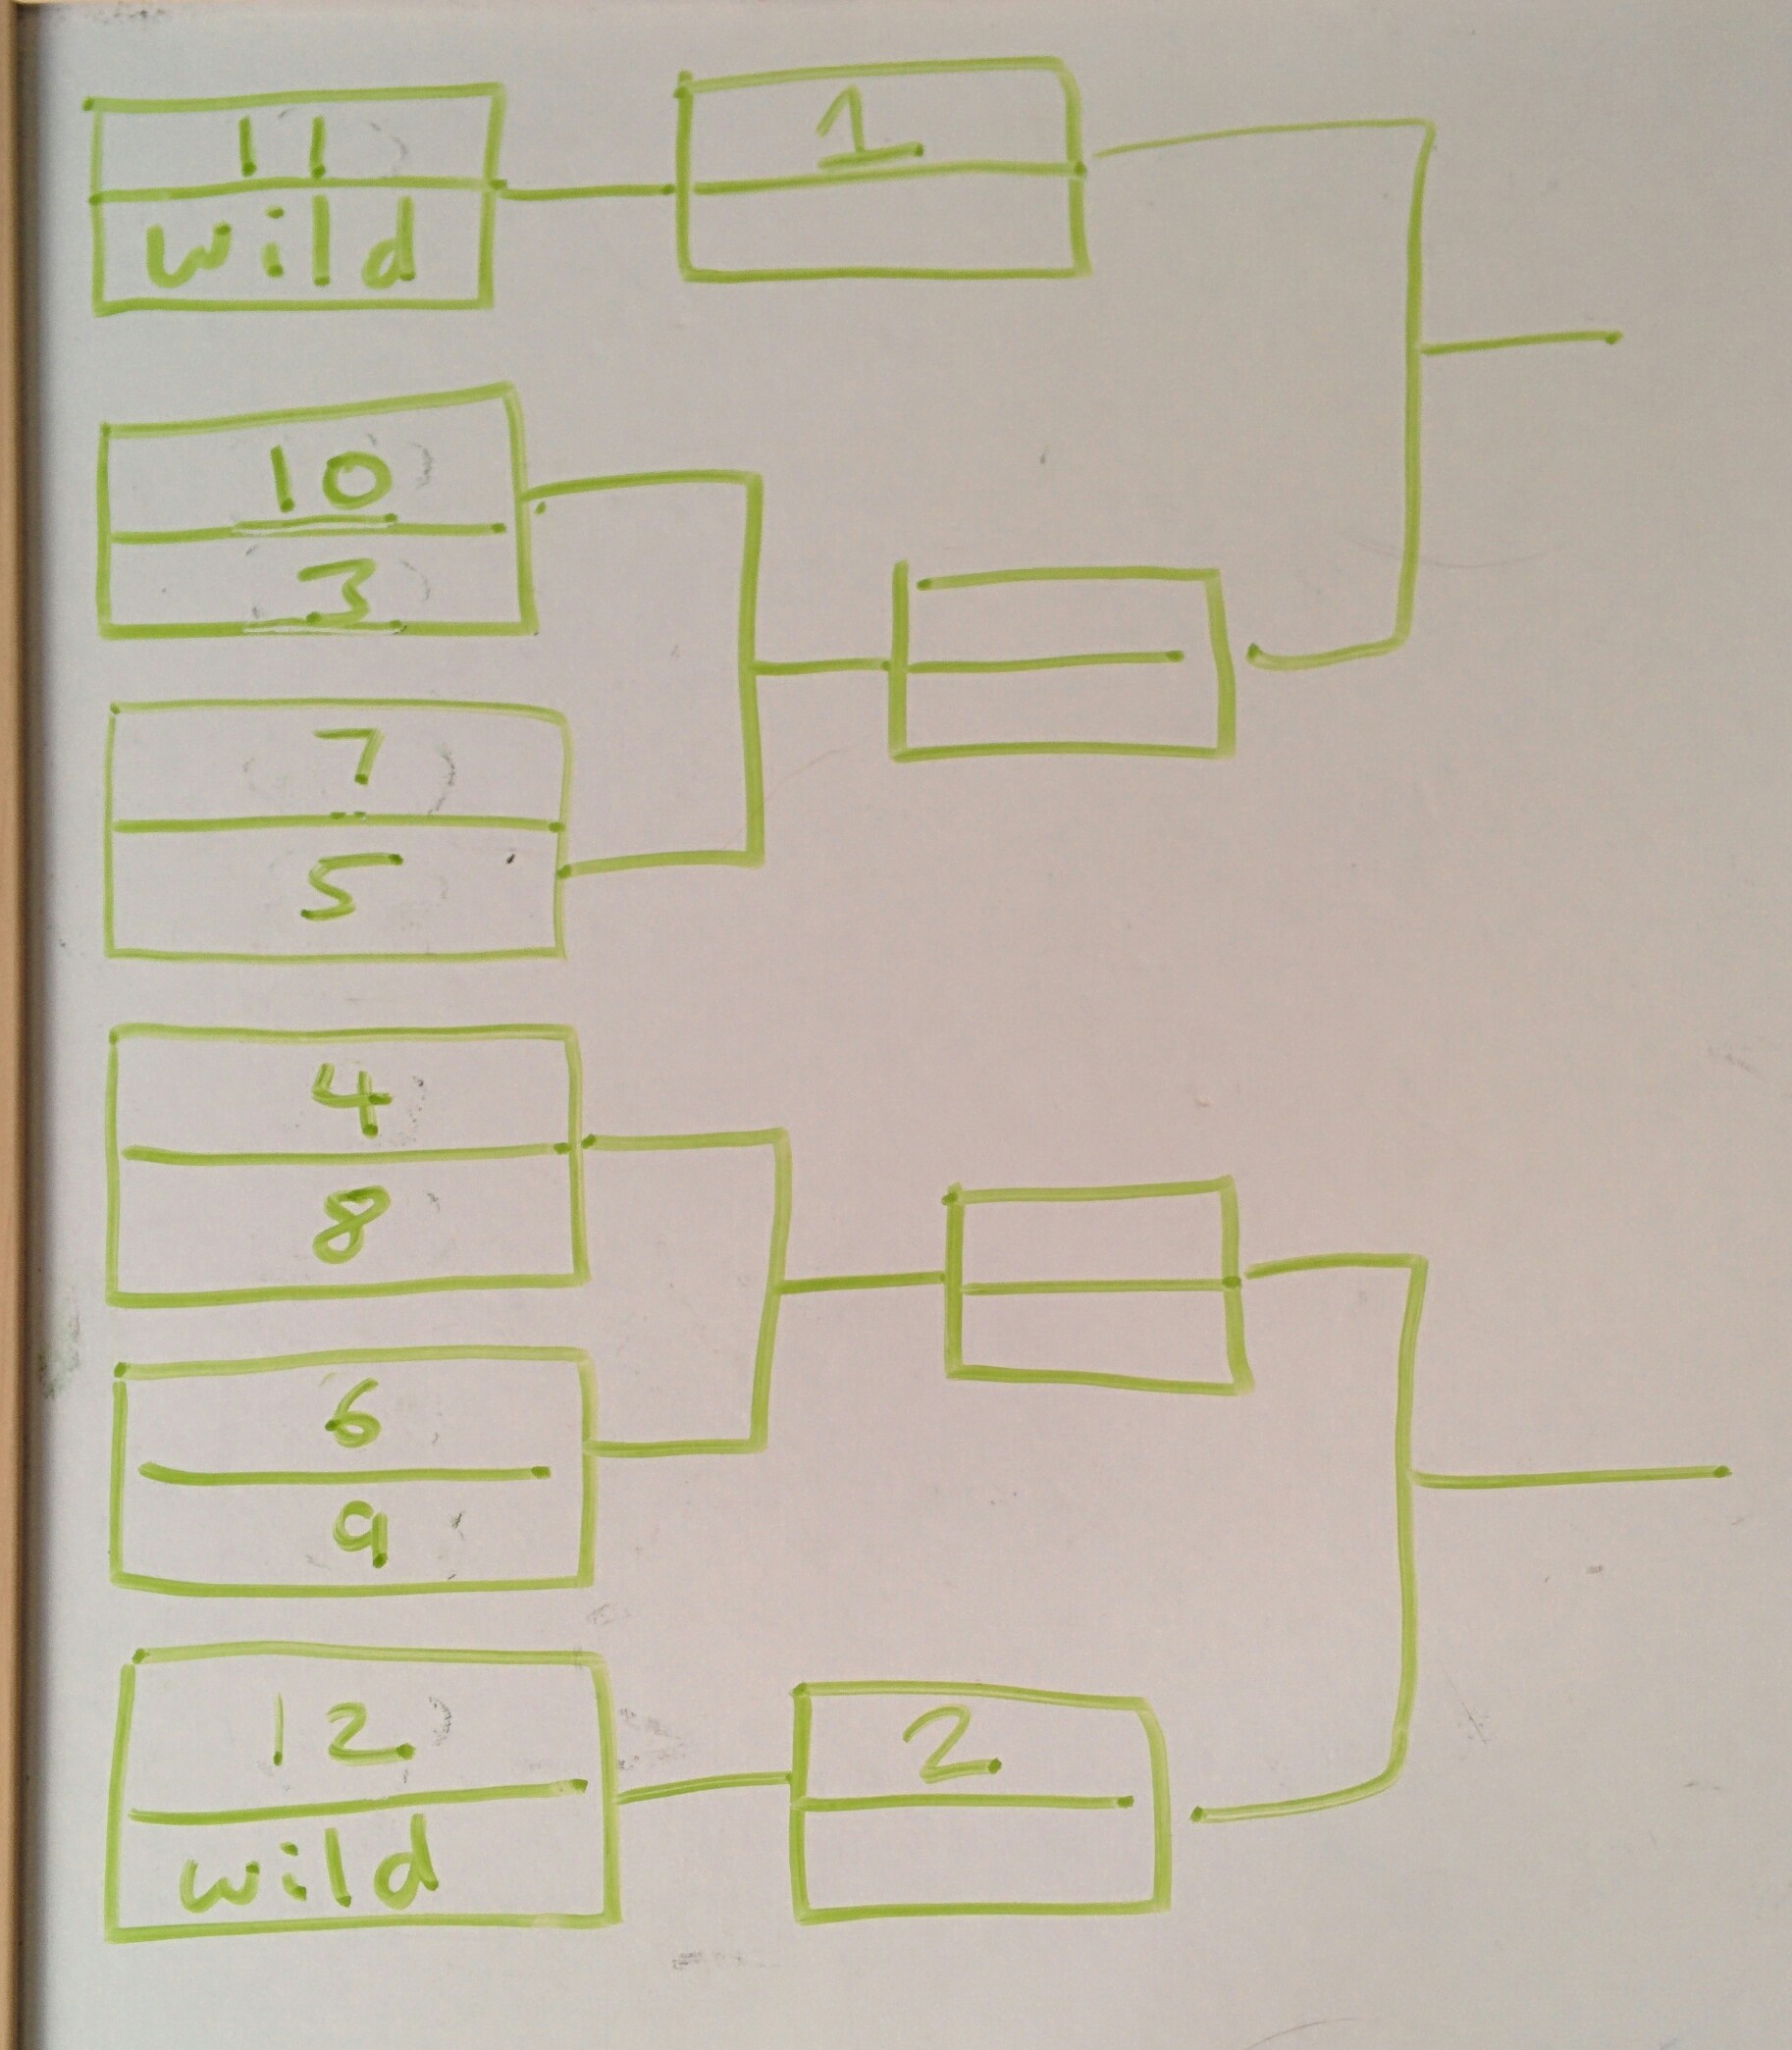 11
wild
1
10
3
7
5
4
8
6
9
12
wild
2